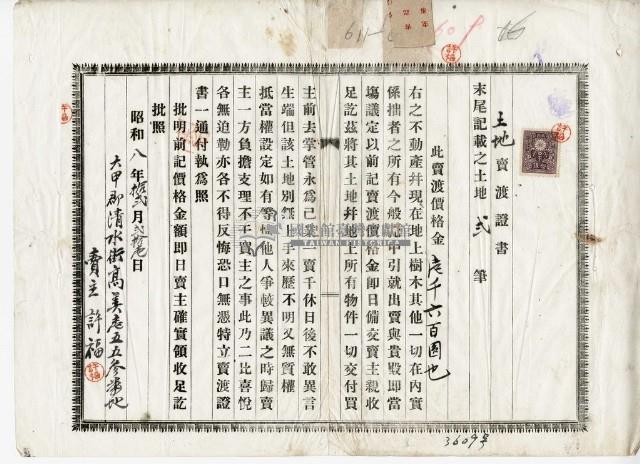 土地賣渡證書
末尾記載之土地 弍 筆
此賣渡價格金壱千六百圓也
右之不動產幷現在地上樹木其他一切在內實
係拙者之所有今般託中引就出賣與貴殿即當
場議定以前記賣渡價格金即日備交賣主親收
足訖茲將其土地幷地上所有物件一切交付買
主前去掌管永為己業一賣千休日後不敢異言
生端但該土地別無上手來歷不明又無質權
抵當權設定如有等情他人爭較異議之時歸賣
主一方負擔支理不干買主之事此乃二比喜悅
各無迫勒亦各不得反悔恐口無憑特立賣渡證
書一通付執為照
批明前記價格金額即日賣主確實領收足訖
批照
昭和八年拾弍月 日
大甲郡清水街高美 五五參番地
賣主 許福
3609号